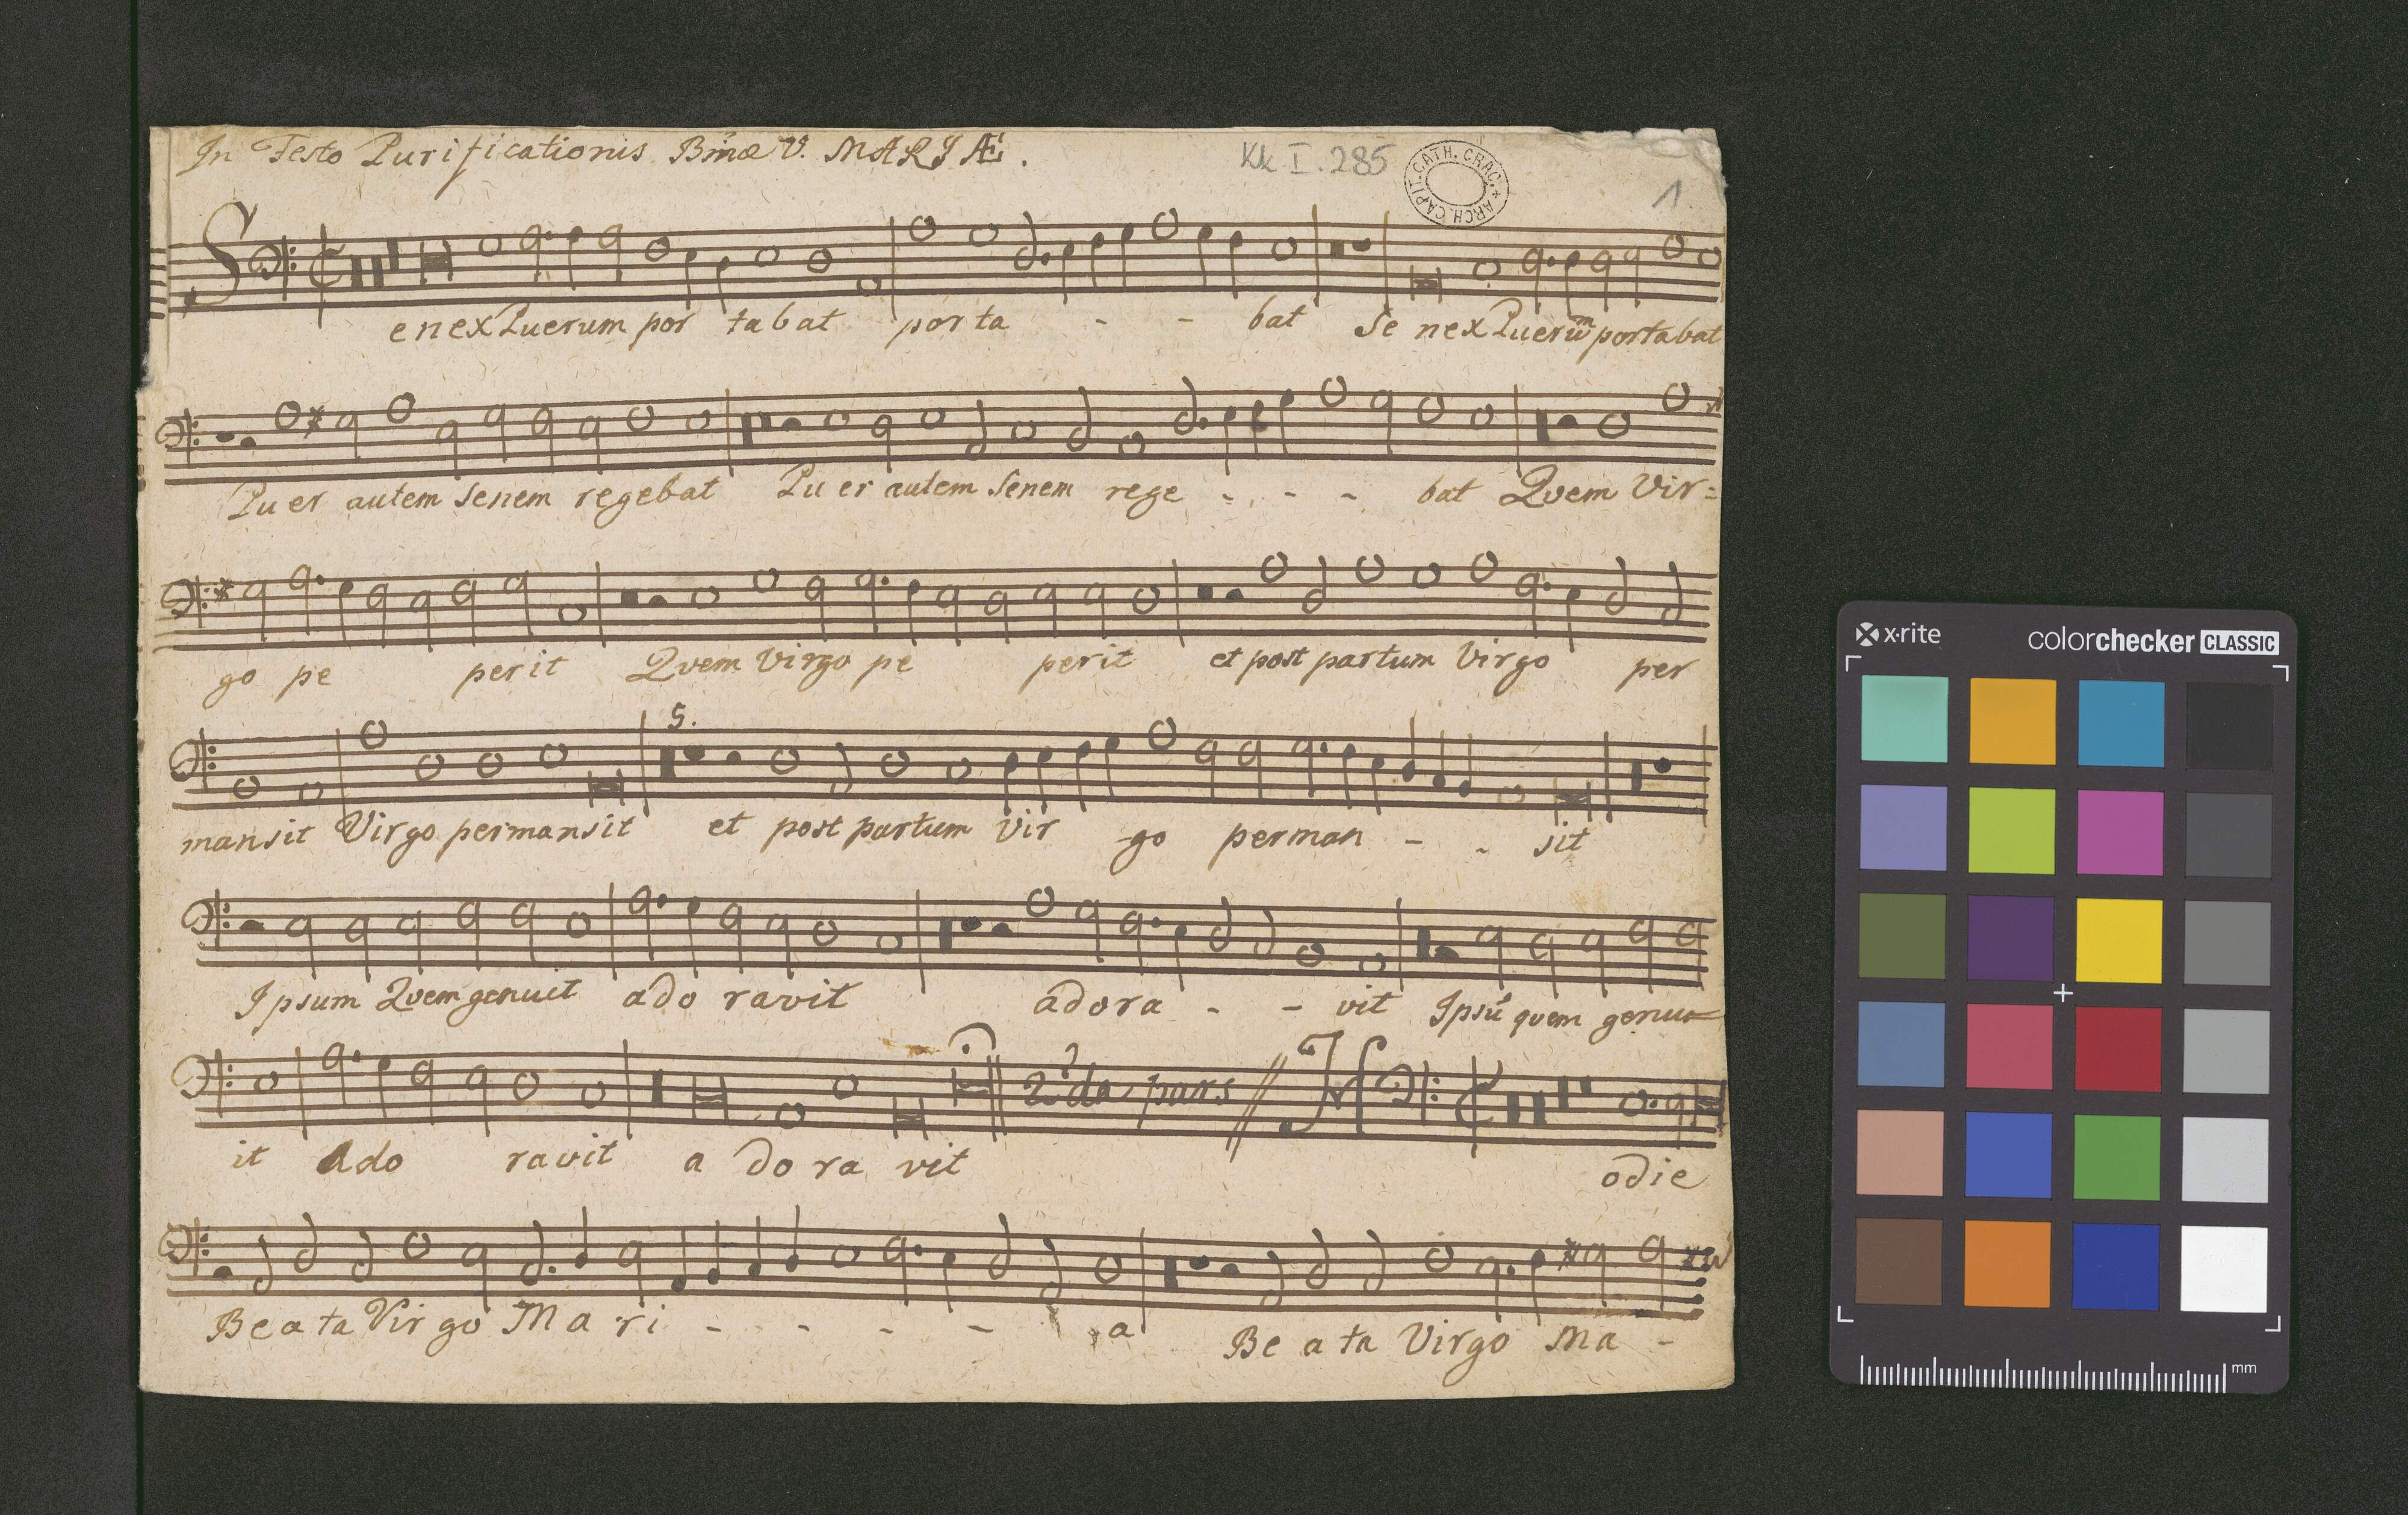 In Festo Purificationis Bmæ V. MARIÆ.
Kk I. 285
ARCH. CAPIT. CATH. CRAC. *
1
S
enex Puerum por tabat porta - - bat Se nex Puerum̃ portabat
Puer autem Senem regebat Puer autem Senem rege - - - bat Qvem Vir=
go pe perit Qvem Virgo pe perit et post partum Virgo per
5.
mansit Virgo permansit et post partum Vir -go perman - - sit
Ipsum Qvem genuit ado ravit adora - - vit Ipsū qvem genu=
2da pars // H
it Ado ravit a do ra vit odie
Beata Virgo Ma ri - - - - a Be a ta Virgo Ma -
x·rite
colorchecker CLASSIC
mm